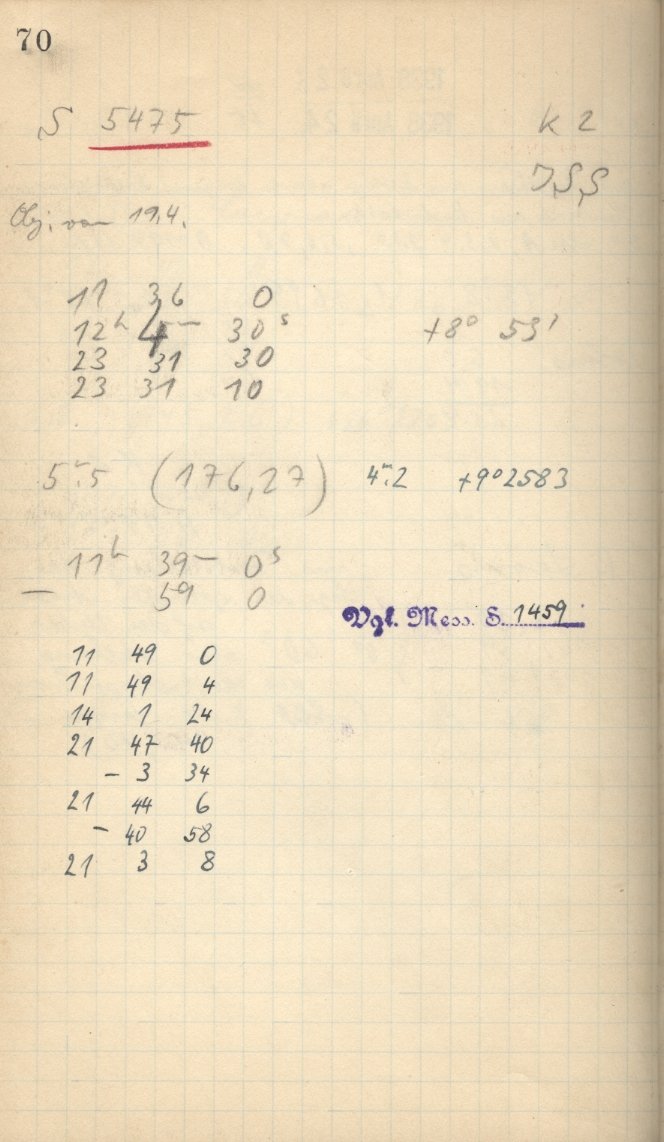 70
S 5475 K 2
JSS
Obj. von 19.4.
11 36 0
12h 4m 30s +8° 53'
23 31 30
23 31 10
5m.5 (176,27) 4m.2 +9°2583
11h 39m 0s
- 59 0
Vgl. Mess. S. 1459
11 49 0
11 49 4
14 1 24
21 47 40
- 3 34
21 44 6
- 40 58
21 3 8